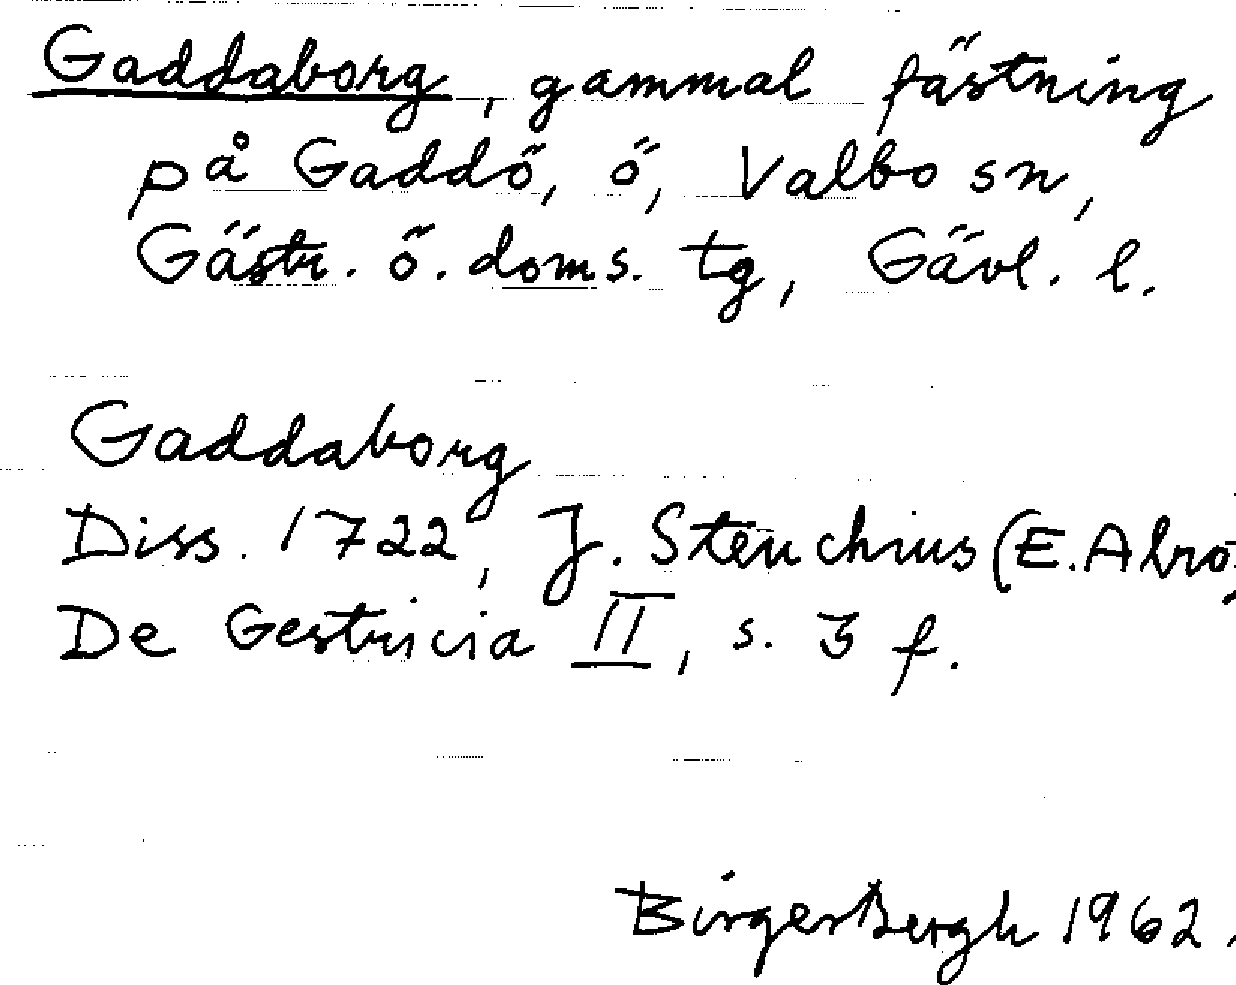 Gaddaborg, gammal fästning
på Gaddö, ö, Valbo sn,
Gästr. ö. doms. tg, Gävl. l.
Gaddaborg
Diss. 1722, J. Steuchius (E. Alro
De Gestricia II, s. 3 f.
Birger Bergh 1962.